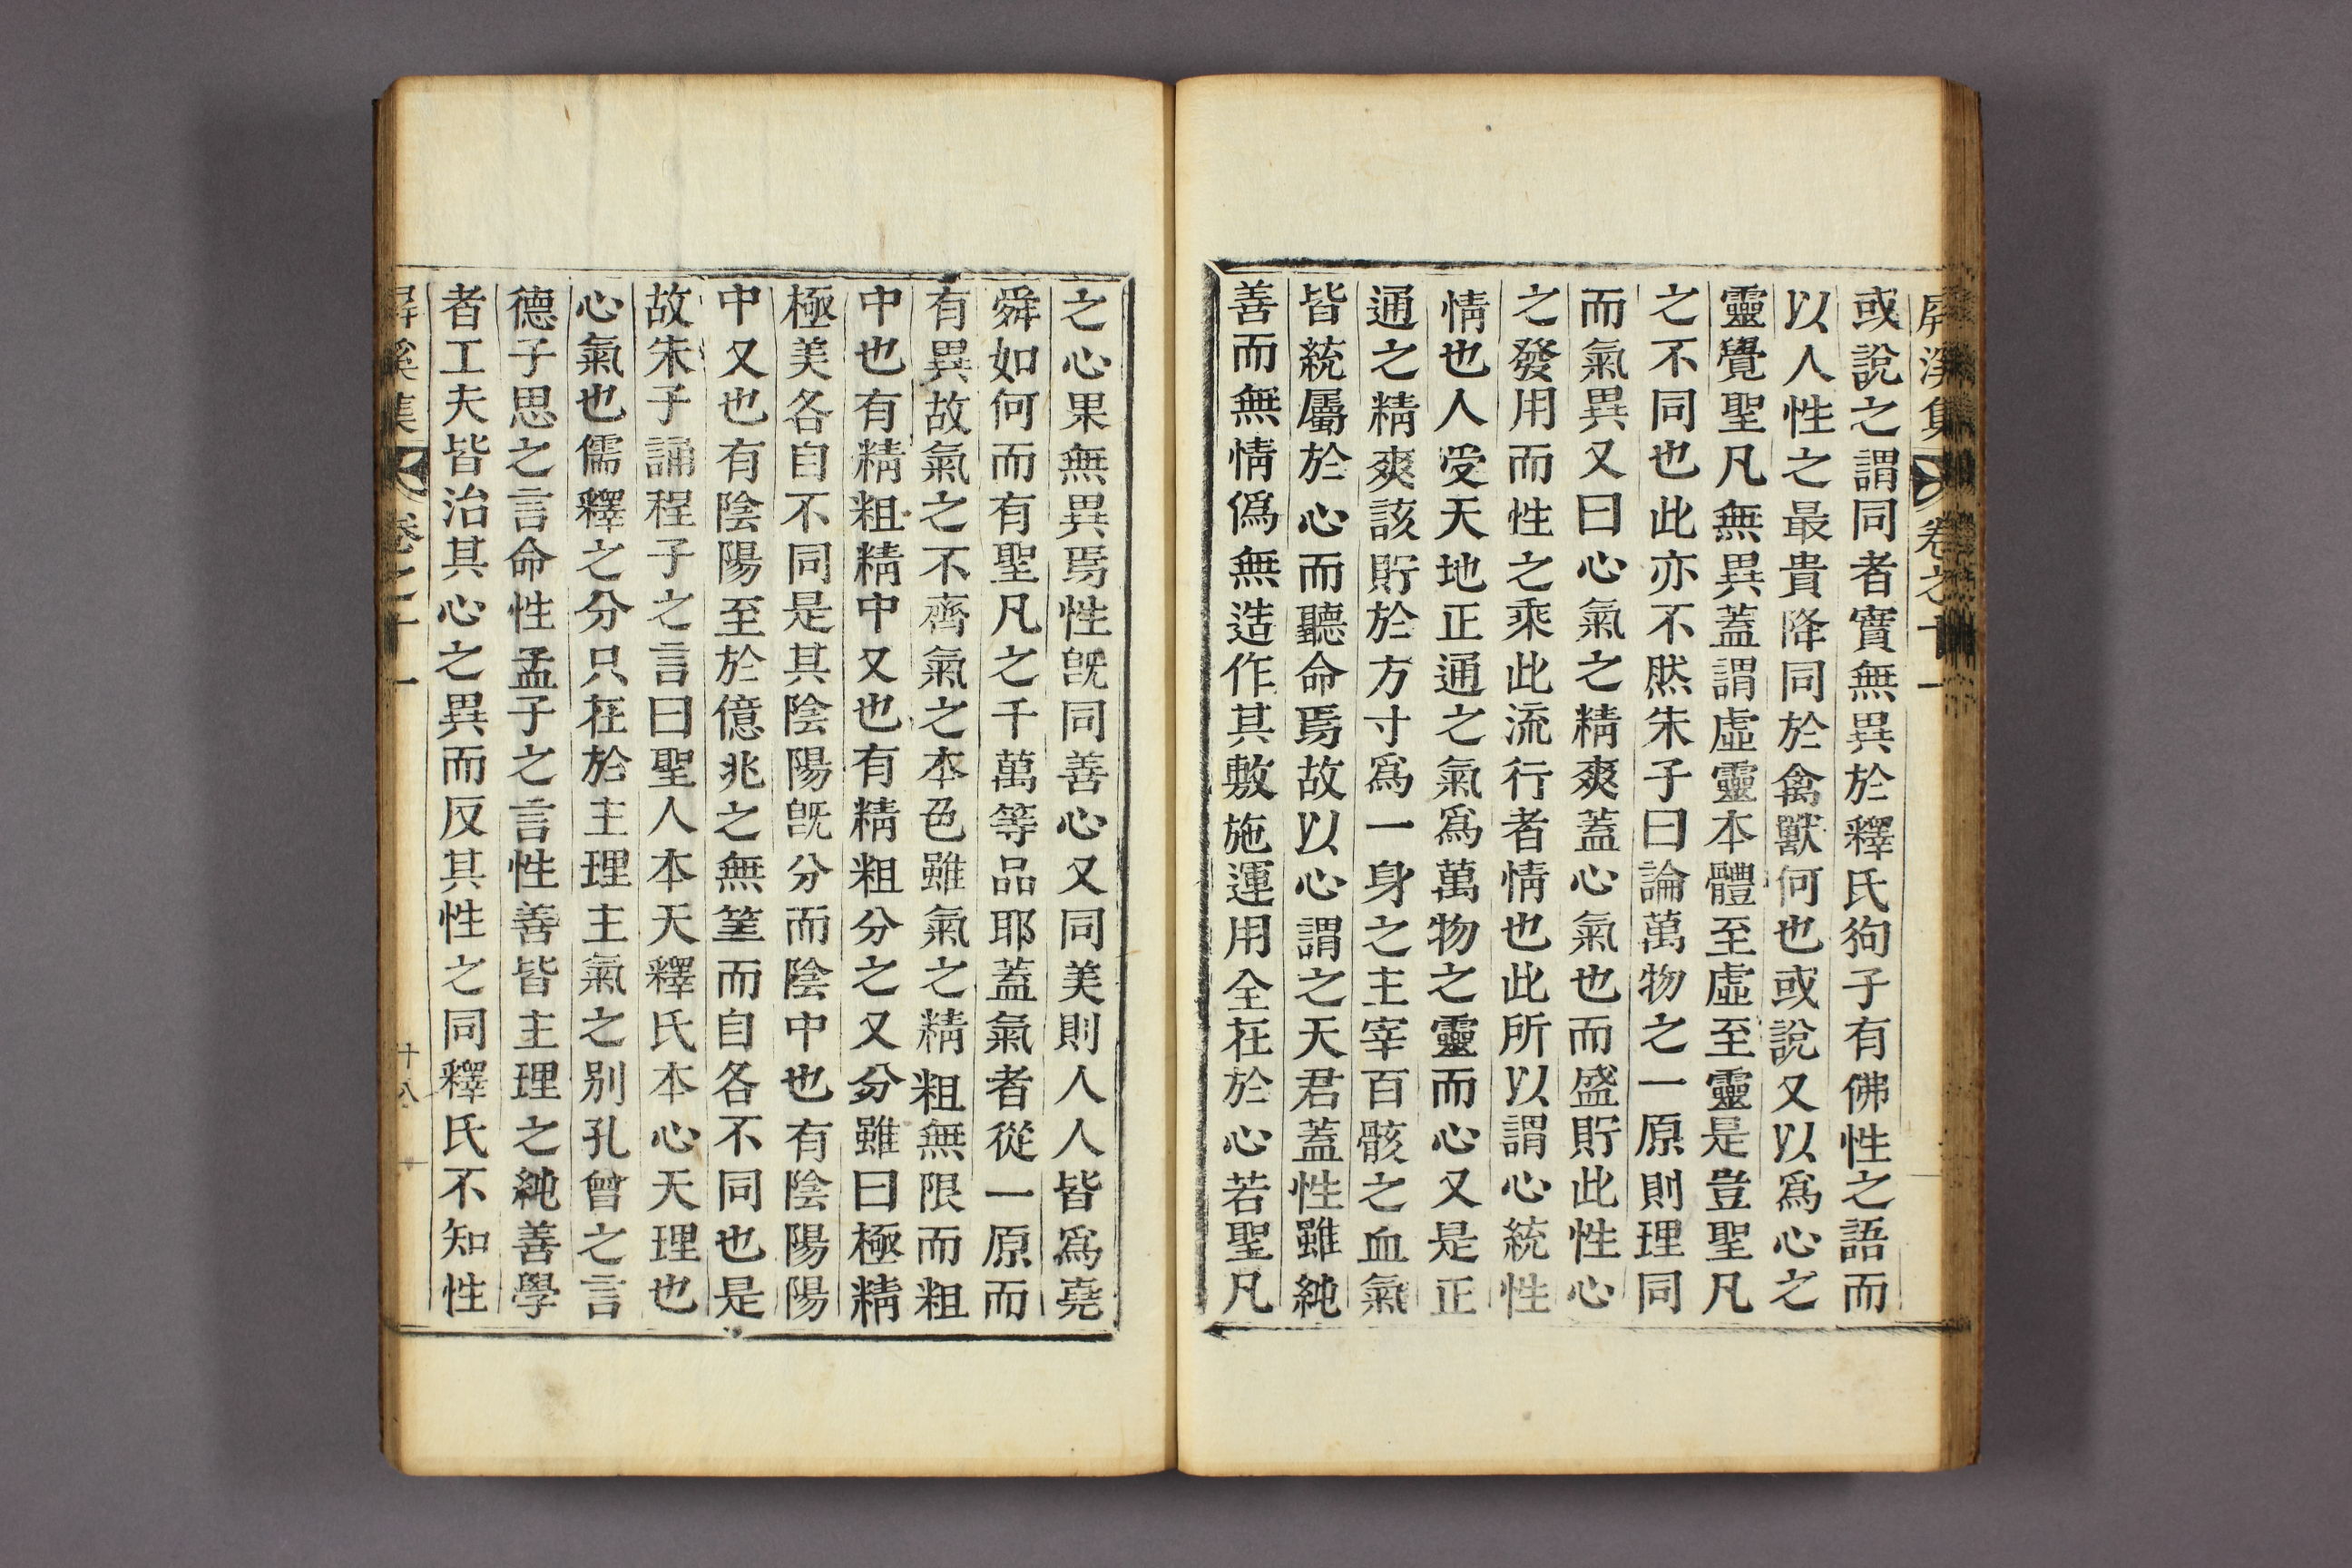 屛溪集 卷之十一
或說之謂同者實無異於釋氏狗子有佛性之語而
以人性之最貴降同於禽獸何也或說又以爲心之
靈覺聖凡無異蓋謂虛靈本體至虛至靈是豈聖凡
之不同也此亦不然朱子曰論萬物之一原則理同
而氣異又曰心氣之精爽蓋心氣也而盛貯此性心
之發用而性之乘此流行者情也此所以謂心統性
情也人受天地正通之氣爲萬物之靈而心又是正
通之精爽該貯於方寸爲一身之主宰百骸之血氣
皆統屬於心而聽命焉故以心謂之天君蓋性雖純
善而無情僞無造作其敷施運用全在於心若聖凡
之心果無異焉性旣同善心又同美則人人皆爲堯
舜如何而有聖凡之千萬等品耶蓋氣者從一原而
有異故氣之不齊氣之本色雖氣之精粗無限而粗
中也有精粗精中又也有精粗分之又分雖曰極精
極美各自不同是其陰陽旣分而陰中也有陰陽陽
中又也有陰陽至於億兆之無筭而自各不同也是
故朱子誦程子之言曰聖人本天釋氏本心天理也
心氣也儒釋之分只在於主理主氣之別孔曾之言
德子思之言命性孟子之言性善皆主理之純善學
者工夫皆治其心之異而反其性之同釋氏不知性
屛溪集 卷之十一 十八